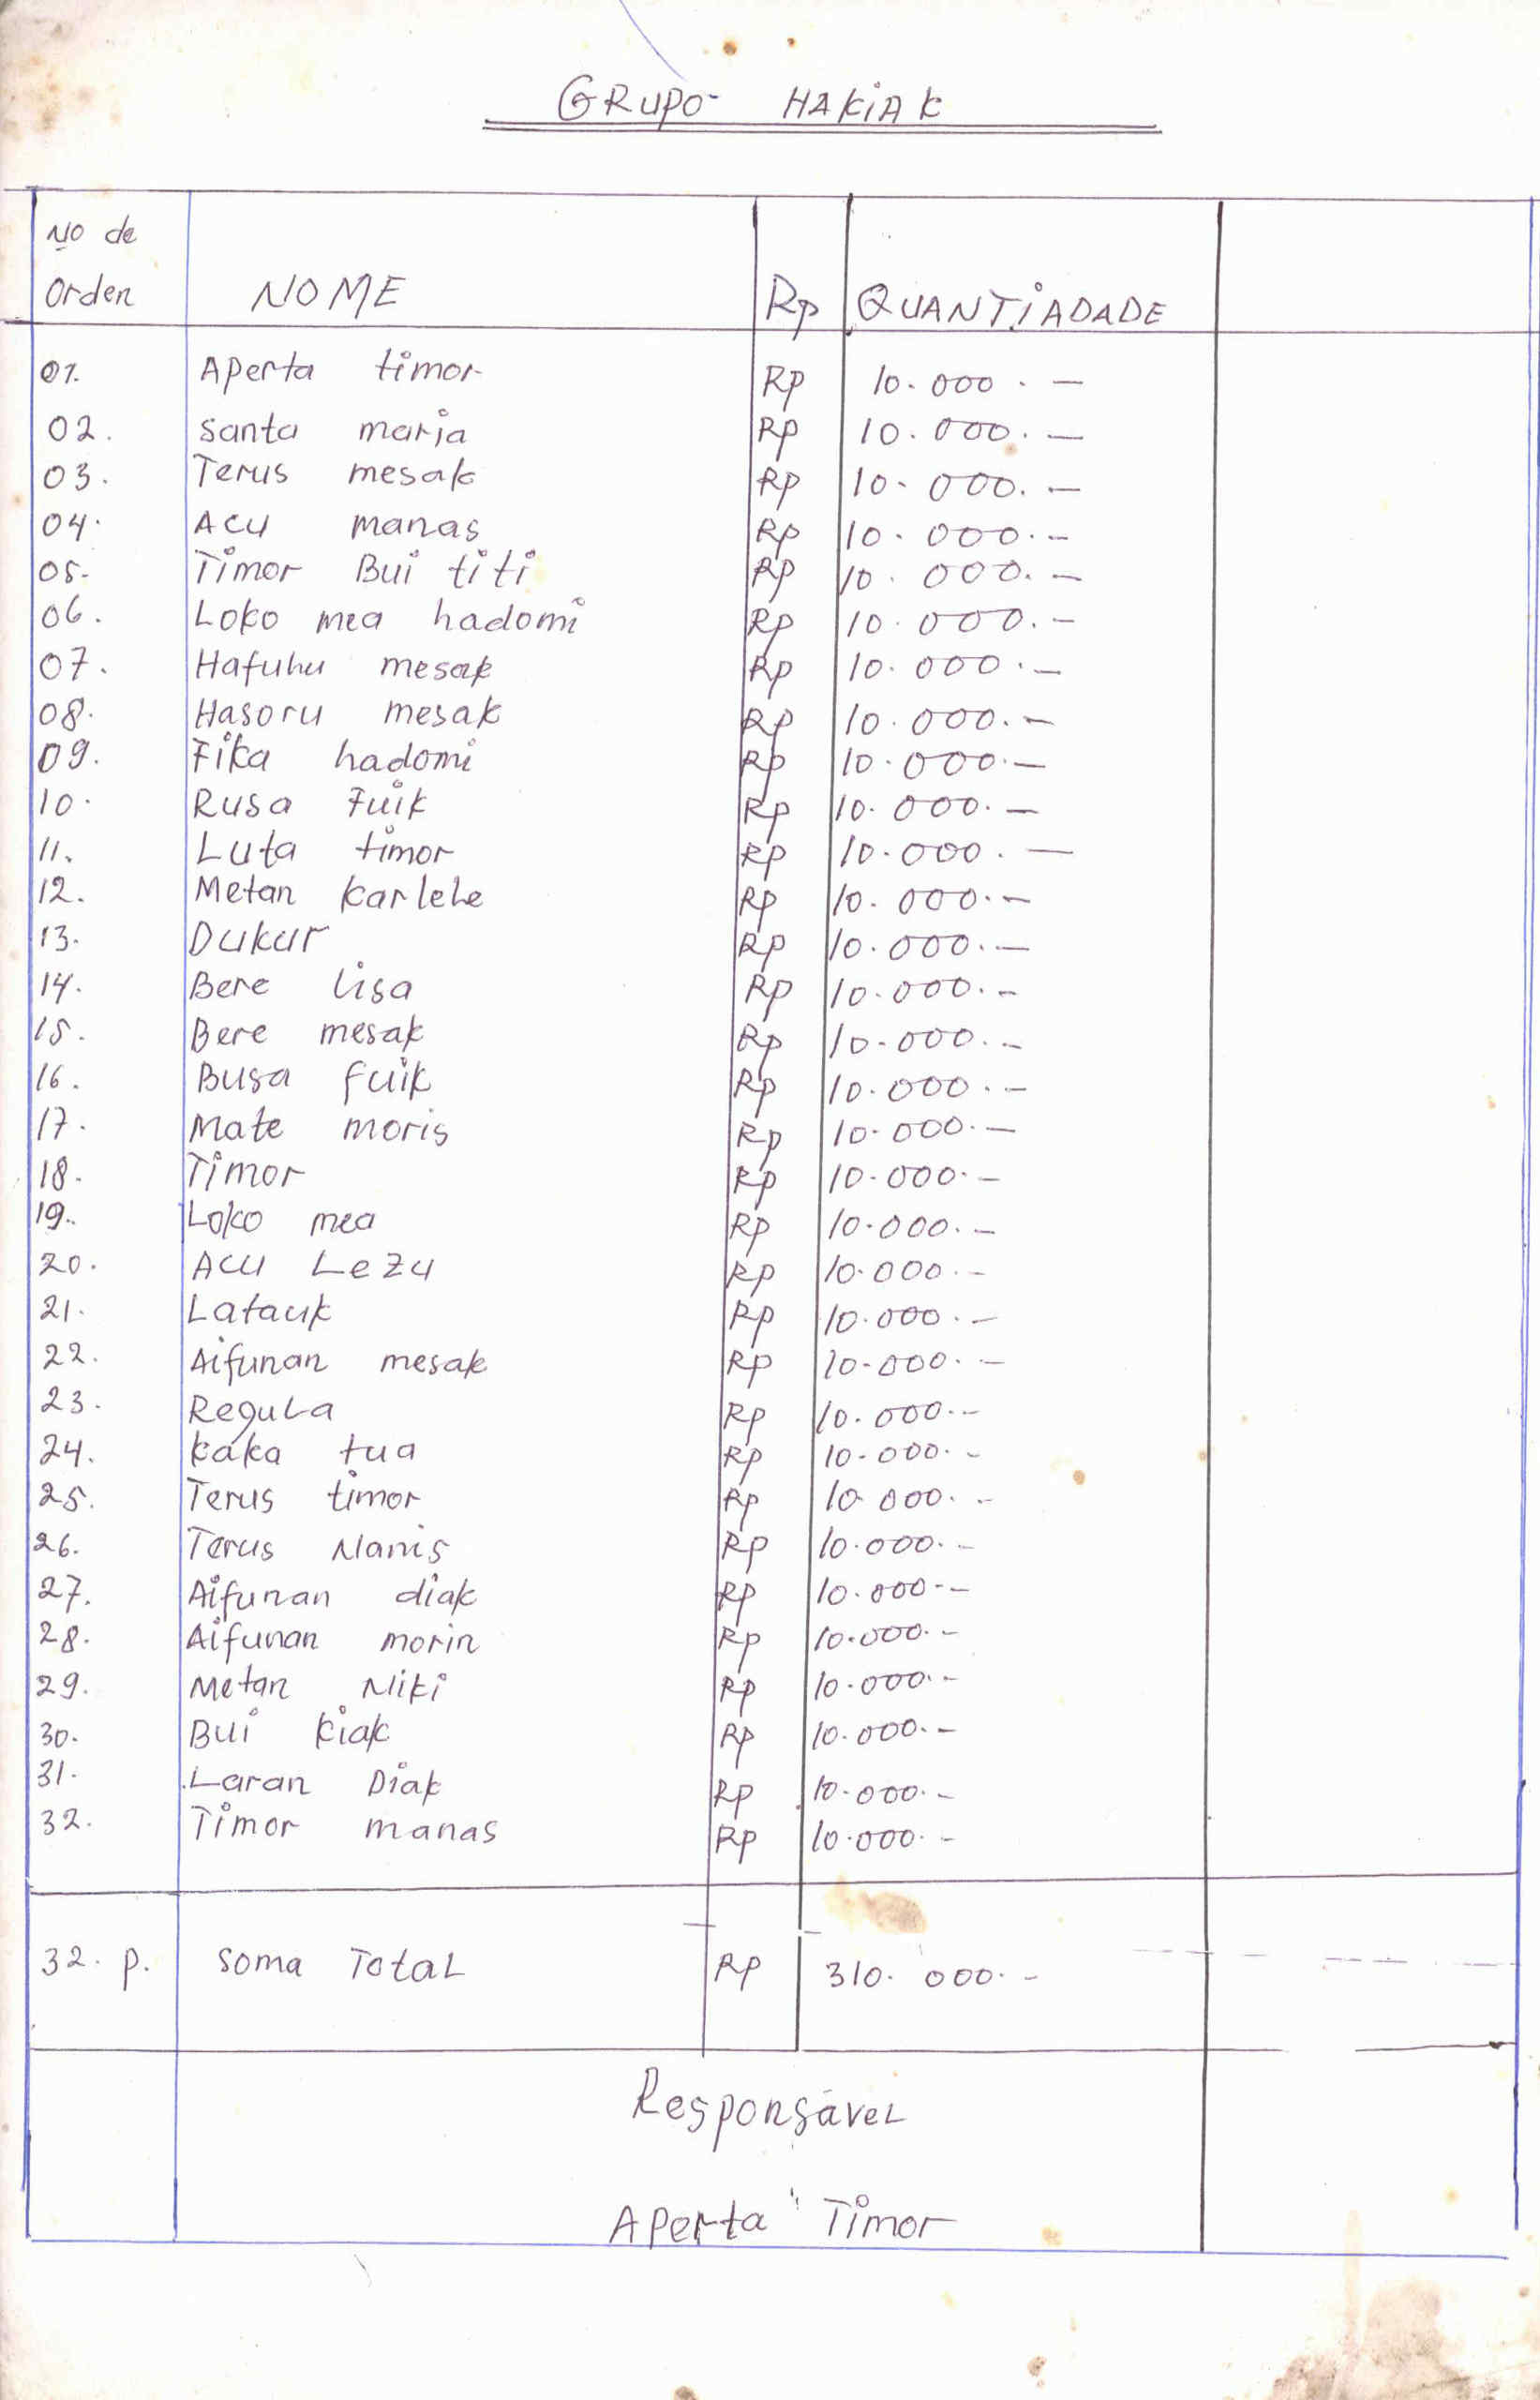 GRUPO HAKIAK
No de Orden NOME Rp QUANTIADADE
01. Aperta timor Rp 10.000.—
02. Santa maria Rp 10.000.—
03. Terus mesak Rp 10.000.—
04. Acu manas Rp 10.000.—
05. Timor Bui titi Rp 10.000.—
06. Loko mea hadomi Rp 10.000.—
07. Hafuhu mesak Rp 10.000.—
08. Hasoru mesak Rp 10.000.—
09. Fika hadomi Rp 10.000.—
10. Rusa Fuik Rp 10.000.—
11. Luta timor Rp 10.000.—
12. Metan Karlele Rp 10.000.—
13. Dukur Rp 10.000.—
14. Bere Lisa Rp 10.000.—
15. Bere mesak Rp 10.000.—
16. Busa fuik Rp 10.000.—
17. Mate moris Rp 10.000.—
18. Timor Rp 10.000.—
19. Loko mea Rp 10.000.—
20. Acu Lezu Rp 10.000.—
21. Latauk Rp 10.000.—
22. Aifunan mesak Rp 10.000.—
23. Regula Rp 10.000.—
24. Kaka tua Rp 10.000.—
25. Terus timor Rp 10.000.—
26. Terus Nanis Rp 10.000.—
27. Aifunan diak Rp 10.000.—
28. Aifunan morin Rp 10.000.—
29. Metan Niki Rp 10.000.—
30. Bui Kiak Rp 10.000.—
31. Laran Diak Rp 10.000.—
32. Timor manas Rp 10.000.—
32. p. Soma Total Rp 310.000.—
Responsável
Aperta Timor